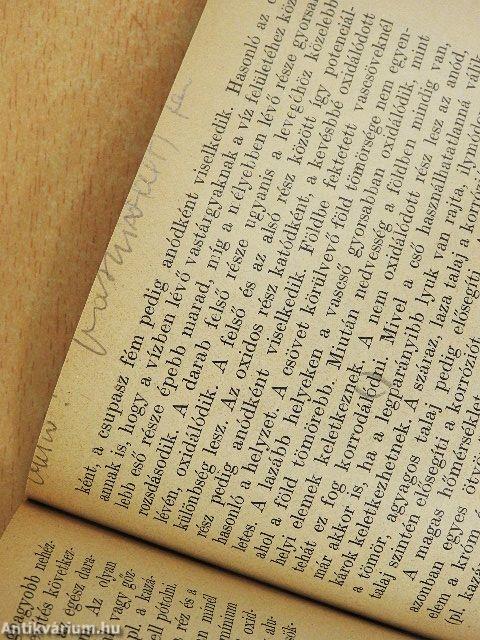 ként, a csupasz fém pedig anódként viselkedik. Hasonló az
annak is, hogy a vízben lévő vastárgyaknak a víz felületéhez köz
lebb eső része épebb marad, míg a mélyebben lévő része gyorsan
rozsdásodik. A darab felső része ugyanis a levegőhöz közelebb
lévén, oxidálódik. A felső és az alsó rész között így potenciál-
különbség lesz. Az oxidos rész katódként, a kevésbbé oxidálódott
rész pedig anódként viselkedik. Földbe fektetett vascsöveknél
hasonló a helyzet. A csövet körülvevő föld tömörsége nem egyen-
letes. A lazább helyeken a vascső gyorsabban oxidálódik, mint
ahol a föld tömörebb. Miután nedvesség a földben mindig van,
helyi elemek keletkeznek. A nem oxidálódott rész lesz az anód,
tehát ez fog korrodálódni. Mivel a cső használhatatlanná válik
már akkor is, ha a legparányibb lyuk van rajta, ilymódon
károk keletkezhetnek. A száraz, laza talaj a
a tömör, agyagos talaj pedig elősegíti
talaj szintén elősegíti a korróziót
A magas hőmérsékle
azonban egyes ötvö
elem a króm é
(pl. kazá
agyobb nehéz-
és következ-
egész dara-
Az olyan
vagy gőz-
pl. a kazá-
ell pótolni.
réz és a
minél
mínium
oxid
alu-
Antikvárium.hu